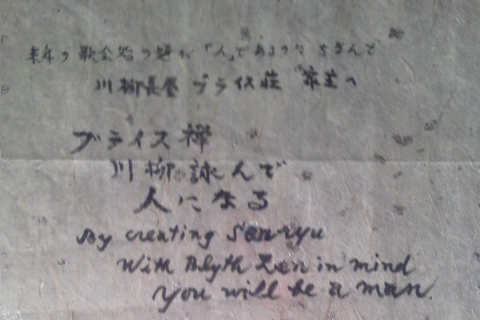 来年の歌会始の題が「人」であるのにちなんで
川柳長屋 ブライス荘 家主へ
ブライス禅
川柳詠んで
人になる
By creating Senryu
With Blyth Zen in mind
you will be a man.